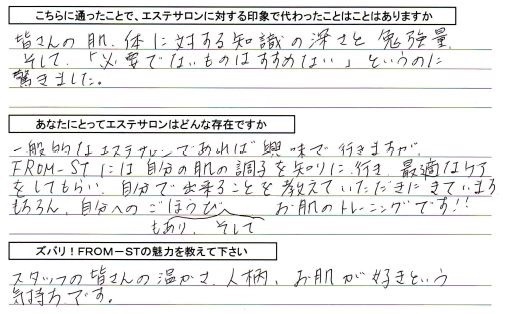 こちらに通ったことで、エステサロンに対する印象で代わったことはことはありますか
皆さんの肌、体に対する知識の深さと勉強量、
そして、「必要でないものはすすめない」というのに
驚きました。
あなたにとってエステサロンはどんな存在ですか
一般的なエステサロンであれば興味で行きますが、
FROM-STには自分の肌の調子を知りに行き、最適なケア
をしてもらい、自分で出来ることを教えていただきにきています
もちろん、自分へのごほうび お肌のトレーニングです!!
もあり、そして
ズバリ！FROM－STの魅力を教えて下さい
スタッフの皆さんの温かさ、人柄、お肌が好きという
気持ちです。